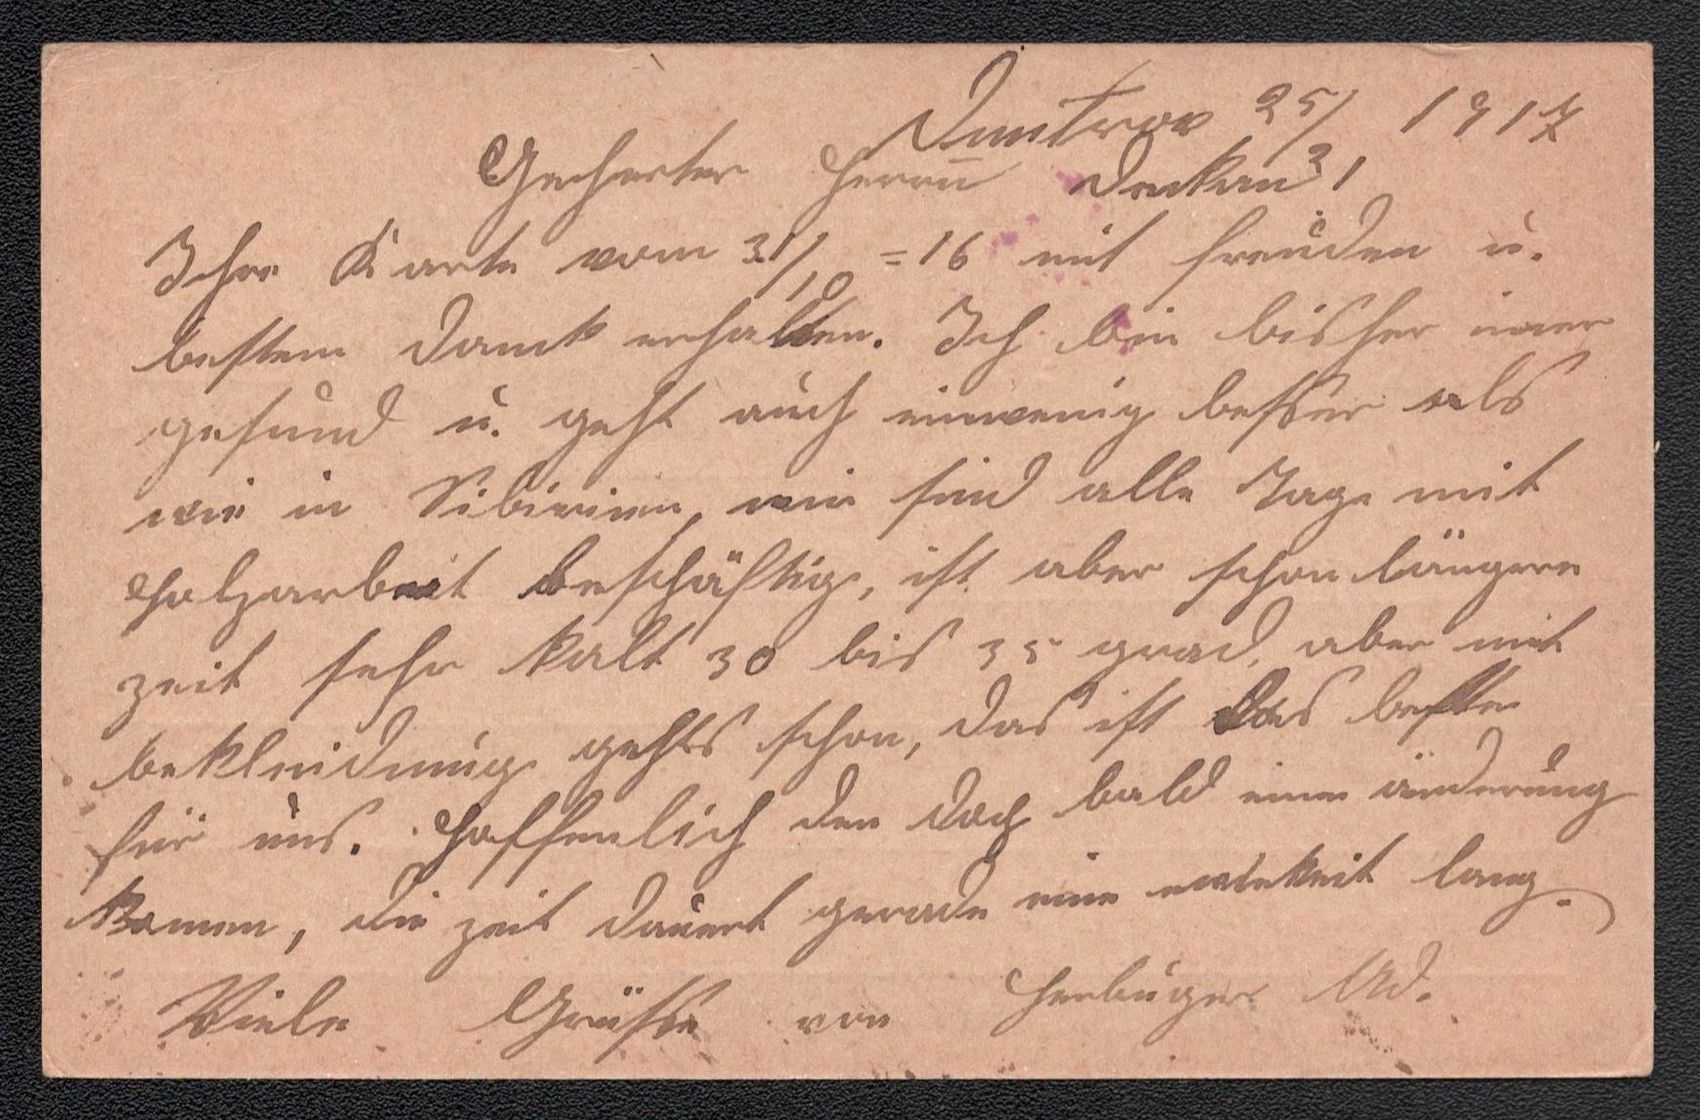 Dmitrov 25/31 1917
Geehrter Herrn Dekan
Ihre Karte vom 31/10 = 16 mit freuden u.
bestem Danck erhalten. Ich bin bisher imer
gesund u. geht auch einwenig besser als
wie in Sibirien, wir sind alle Tage mit
Holzarbeit beschäftig, ist aber schon längere
zeit sehr kalt 30 bis 35 grad, aber mit
bekleidung gehts schon, das ist das beste
für uns. Hoffenlich den doch bald eine änderung
komen, die zeit dauert gerade eine ewiekeit lang.
Viele Grüsse von Herbuger Ad.